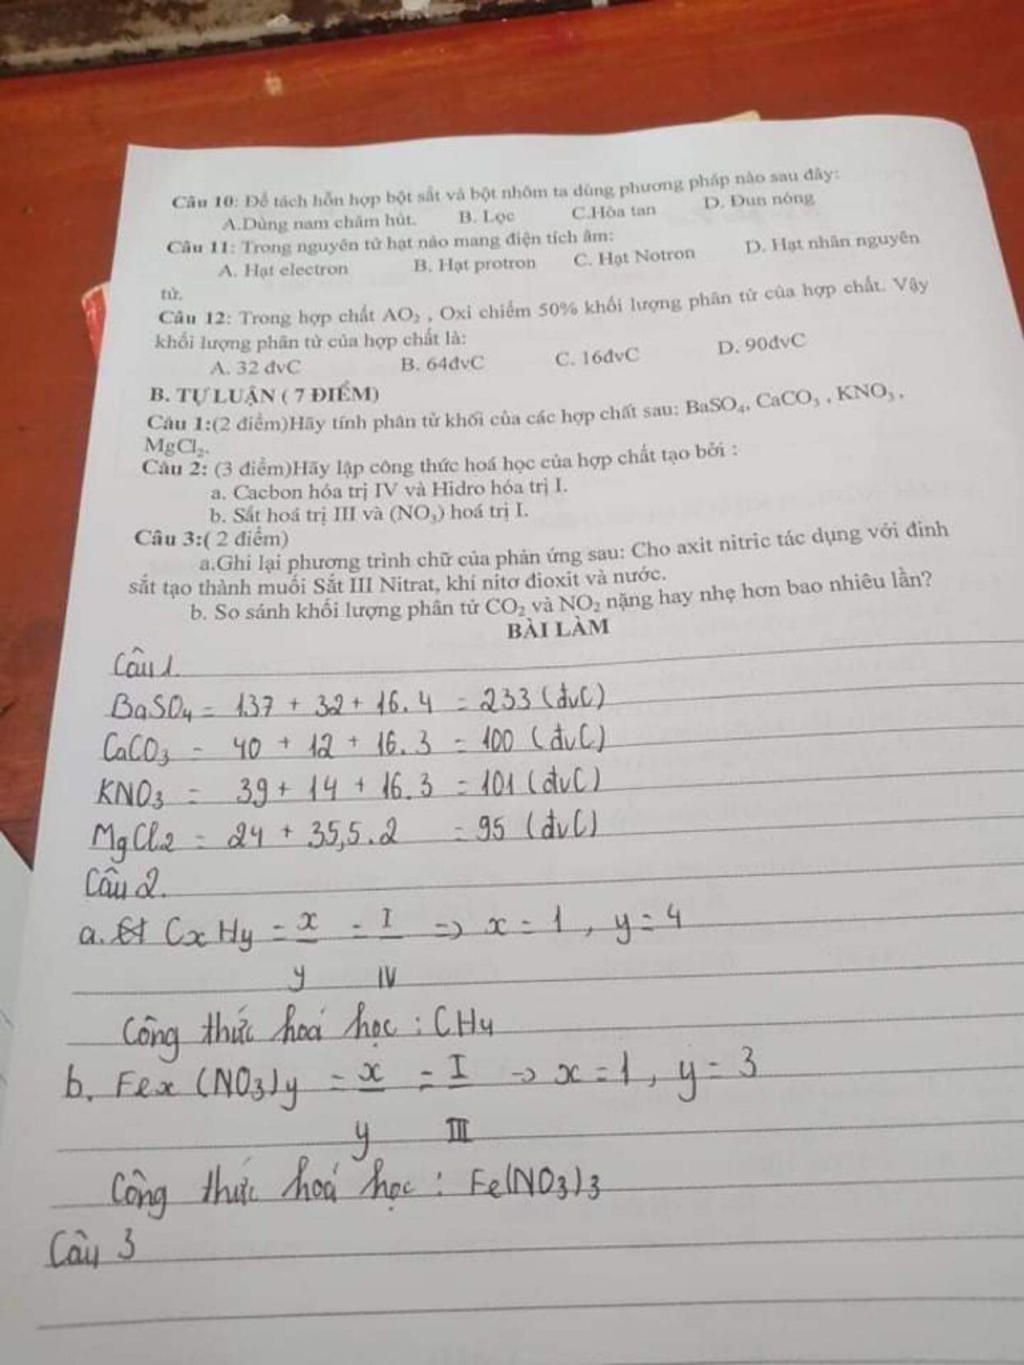 Câu 10: Để tách hỗn hợp bột sắt và bột nhôm ta dùng phương pháp nào sau đây:
A.Dùng nam châm hút. B. Lọc C.Hòa tan D. Đun nóng
Câu 11: Trong nguyên tử hạt nào mang điện tích âm:
A. Hạt electron B. Hạt protron C. Hạt Notron D. Hạt nhân nguyên
tử.
Câu 12: Trong hợp chất AO₂ , Oxi chiếm 50% khối lượng phân tử của hợp chất. Vậy
khối lượng phân tử của hợp chất là:
A. 32 đvC B. 64đvC C. 16đvC D. 90đvC
B. TỰ LUẬN ( 7 ĐIỂM)
Câu 1:(2 điểm)Hãy tính phân tử khối của các hợp chất sau: BaSO₄, CaCO₃ , KNO₃ ,
MgCl₂.
Câu 2: (3 điểm)Hãy lập công thức hoá học của hợp chất tạo bởi :
a. Cacbon hóa trị IV và Hidro hóa trị I.
b. Sắt hoá trị III và (NO₃) hoá trị I.
Câu 3:( 2 điểm)
a.Ghi lại phương trình chữ của phản ứng sau: Cho axit nitric tác dụng với đinh
sắt tạo thành muối Sắt III Nitrat, khí nitơ đioxit và nước.
b. So sánh khối lượng phân tử CO₂ và NO₂ nặng hay nhẹ hơn bao nhiêu lần?
BÀI LÀM
Câu 1.
BaSO₄ = 137 + 32 + 16.4 = 233 (đvC)
CaCO₃ = 40 + 12 + 16.3 = 100 (đvC)
KNO₃ = 39 + 14 + 16.3 = 101 (đvC)
MgCl₂ = 24 + 35,5.2 = 95 (đvC)
Câu 2.
a. CxHy = x = I => x = 1 , y = 4
y IV
Công thức hoá học : CH₄
b. Fex (NO₃)y = x = I -> x = 1 , y = 3
y III
Công thức hoá học : Fe(NO₃)₃
Câu 3